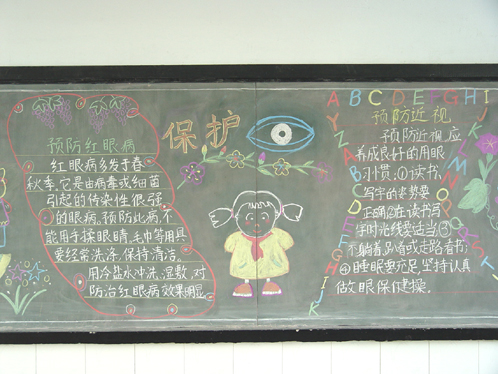 预防红眼病
红眼病多发于春
秋季,它是由病毒或细菌
引起的传染性很强
的眼病,预防此病,不
能用手揉眼睛,毛巾等用具
要经常洗涤,保持清洁。
用冷盐水冲洗、湿敷,对
防治红眼病效果明显
保护
A B C D E F G H I
预防近视
预防近视应
养成良好的用眼
习惯:①读书、
写字的姿势要
正确②在读书写
字时光线要适当③
不躺着、趴着或走路看书;
④睡眠要充足,坚持认真
做眼保健操。